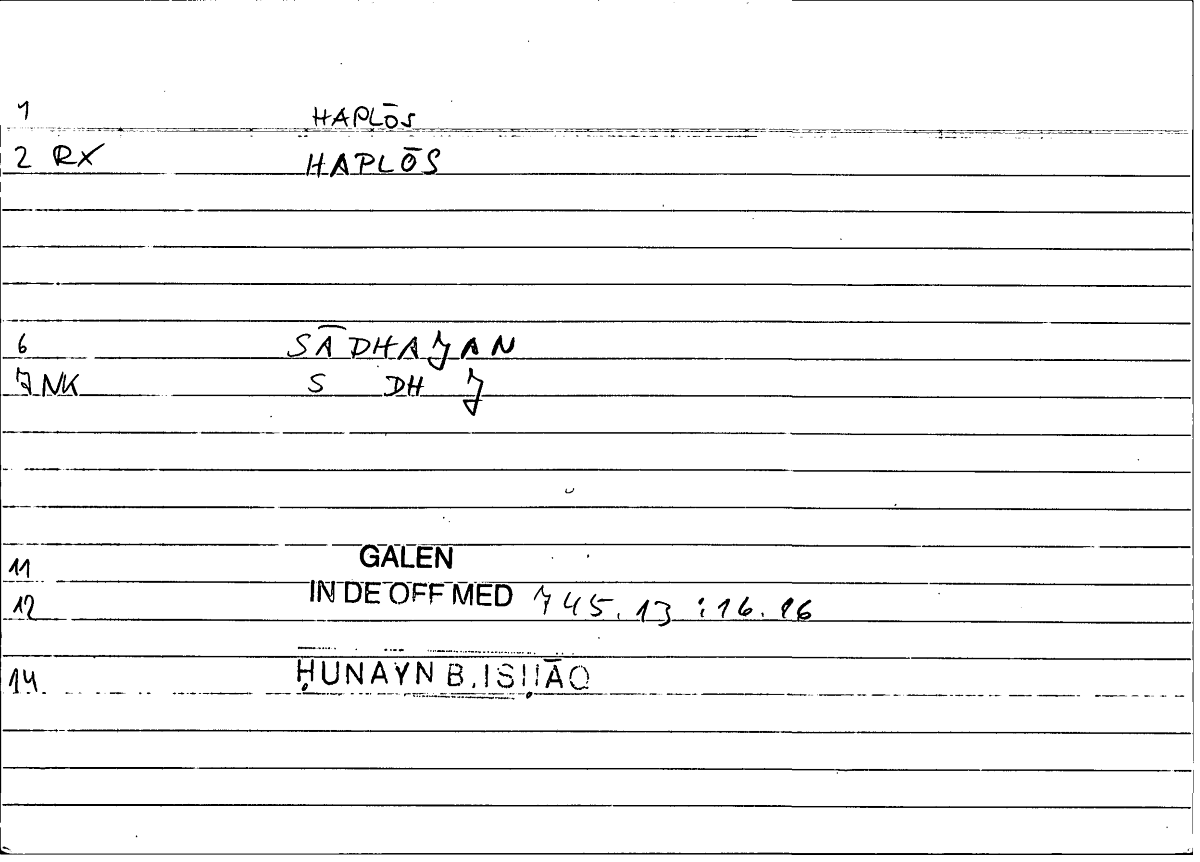 1 HAPLŌS
2 RX HAPLŌS
6 SĀDHAJAN
7 NK S DH J
11 GALEN
12 IN DE OFF MED 745.13 : 16.16
14 ḤUNAYN B. ISḤĀQ